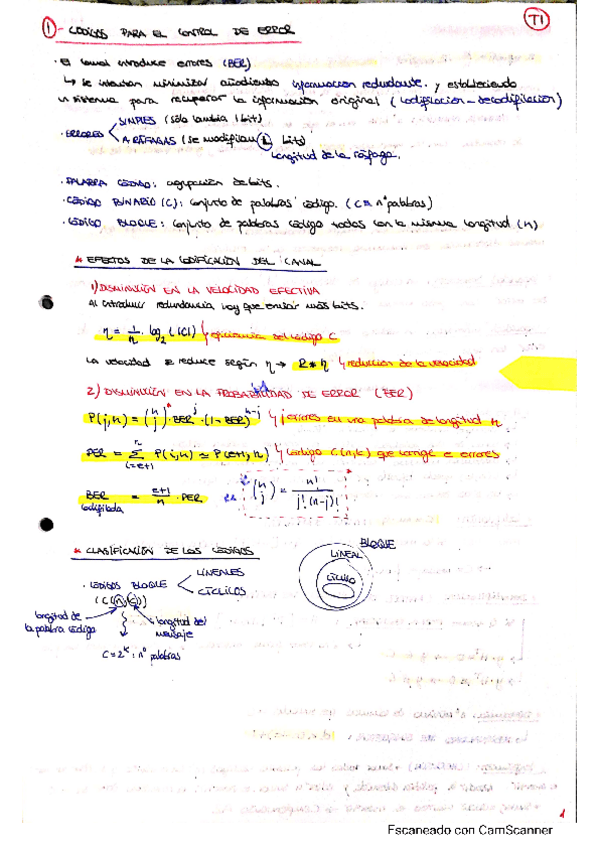 T1
1 - CÓDIGOS PARA EL CONTROL DE ERROR
· El canal introduce errores (BER)
↳ Se intentan minimizar añadiendo información redundante. y estableciendo
un sistema para recuperar la información original (codificación - decodificación)
· ERRORES
SIMPLES (sólo cambia 1 bit)
A RÁFAGAS (se modifican L bits)
longitud de la ráfaga.
· PALABRA CÓDIGO: agrupación de bits.
· CÓDIGO BINARIO (C): conjunto de palabras código. (C = nº palabras)
· CÓDIGO BLOQUE: conjunto de palabras código todas con la misma longitud (n)
* EFECTOS DE LA CODIFICACIÓN DEL CANAL
1) DISMINUCIÓN EN LA VELOCIDAD EFECTIVA
Al introducir redundancia hay que enviar más bits.
η = 1/n · log₂ (|C|) eficiencia del código C
La velocidad se reduce según η → R * η reducción de la velocidad
2) DISMINUCIÓN EN LA PROBABILIDAD DE ERROR (BER)
P(j,n) = (n j)* · BER^j · (1-BER)^(n-j) j errores en una palabra de longitud n
PER = Σ P(i,n) ≃ P(e+1,n) código C(n,k) que corrige e errores
n
i=e+1
BER codificada = e+1/n · PER
* (n j) = n! / j!(n-j)!
* CLASIFICACIÓN DE LOS CÓDIGOS
BLOQUE
LINEAL
CÍCLICO
· CÓDIGOS BLOQUE
LINEALES
CÍCLICOS
longitud de
la palabra código
longitud del
mensaje
C = 2^k : nº palabras
1
Escaneado con CamScanner